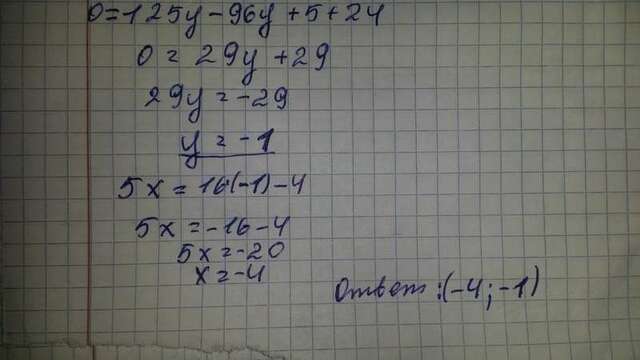 0=125y-96y+5+24
0=29y+29
29y=-29
y=-1
5x=16(-1)-4
5x=-16-4
5x=-20
x=-4
Ответ:(-4;-1)